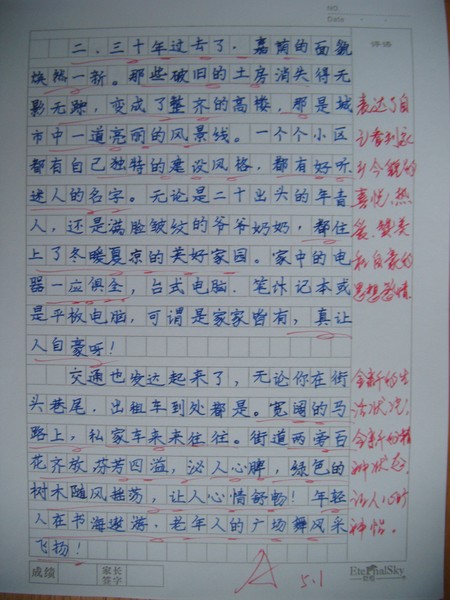 NO.
Date
二、三十年过去了，嘉荫的面貌
焕然一新。那些破旧的土房消失得无
影无踪，变成了整齐的高楼，那是城
市中一道亮丽的风景线。一个个小区
都有自己独特的建设风格，都有好听
迷人的名字。无论是二十出头的年青
人，还是满脸皱纹的爷爷奶奶，都住
上了冬暖夏京的美好家园。家中的电
器一应俱全，台式电脑、笔计记本或
是平板电脑，可谓是家家皆有，真让
人自豪呀！
交通也发达起来了，无论你在街
头巷尾，出租车到处都是。宽阔的马
路上，私家车来来往往。街道两旁百
花齐放芬芳四溢，泌人心脾，绿色的
树木随风摇荡，让人心情舒畅！年轻
人在书海遨游，老年人的广场舞风采
飞扬！
表达了自
喜悦、热
爱、赞美
和自豪的
思想感情
全新的生
活状况，
全新的精
神状态，
让人心旷
神怡。
成绩
家长
签字
A
5.1
EternalSky